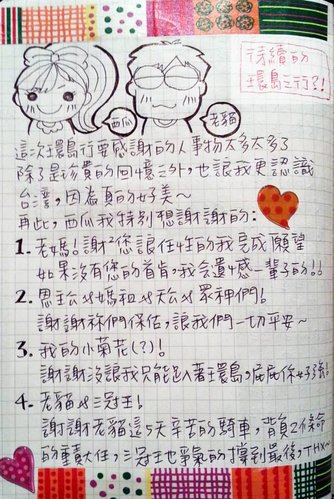 待續的
環島之行了!
西瓜
老貓
這次環島行要感謝的人事物太多太多了
除了最珍貴的回憶之外,也讓我更認識
台灣,因為真的好美~
再此,西瓜我特別想謝謝的:
1. 老媽!謝²您讓任性的我完成願望
如果沒有您的首肯,我会遺憾一輩子的!!
2. 恩主公&媽祖&天公&眾神們!
謝謝祢們保佑,讓我們一切平安~
3. 我的小菊花(?)!
謝謝沒讓我只能趴著環島,屁屁你好強!
4. 老貓&三冠王!
謝謝老貓這5天辛苦的騎車,背負2條命
的重責大任,三冠王也爭氣的撐到最後,THX~